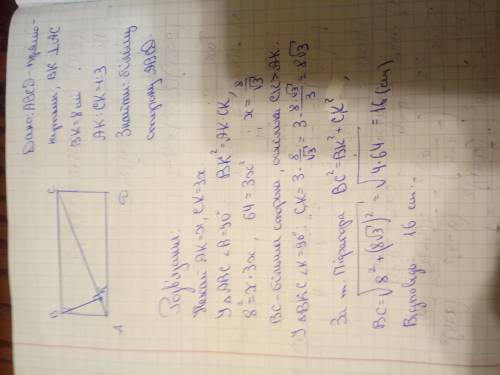 Дано: ABCD-прямо-
кутник, BK ⊥ AC
BK = 8 см
AK : CK = 1:3
Знайти: більшу
сторону ABCD
B
C
K
A
D
Розв'язання:
Нехай AK = x, CK = 3x
У △ABC ∠B = 90° BK² = AK·CK,
8² = x · 3x, 64 = 3x² x = 8/√3
BC - більша сторона, оскільки CK > AK.
У △BKC ∠K = 90°: CK = 3 · 8/√3 = 3 · 8√3/3 = 8√3
За т. Піфагора BC² = BK² + CK²,
BC = √8² + (8√3)² = √4·64 = 16 (см)
Відповідь 16 см.